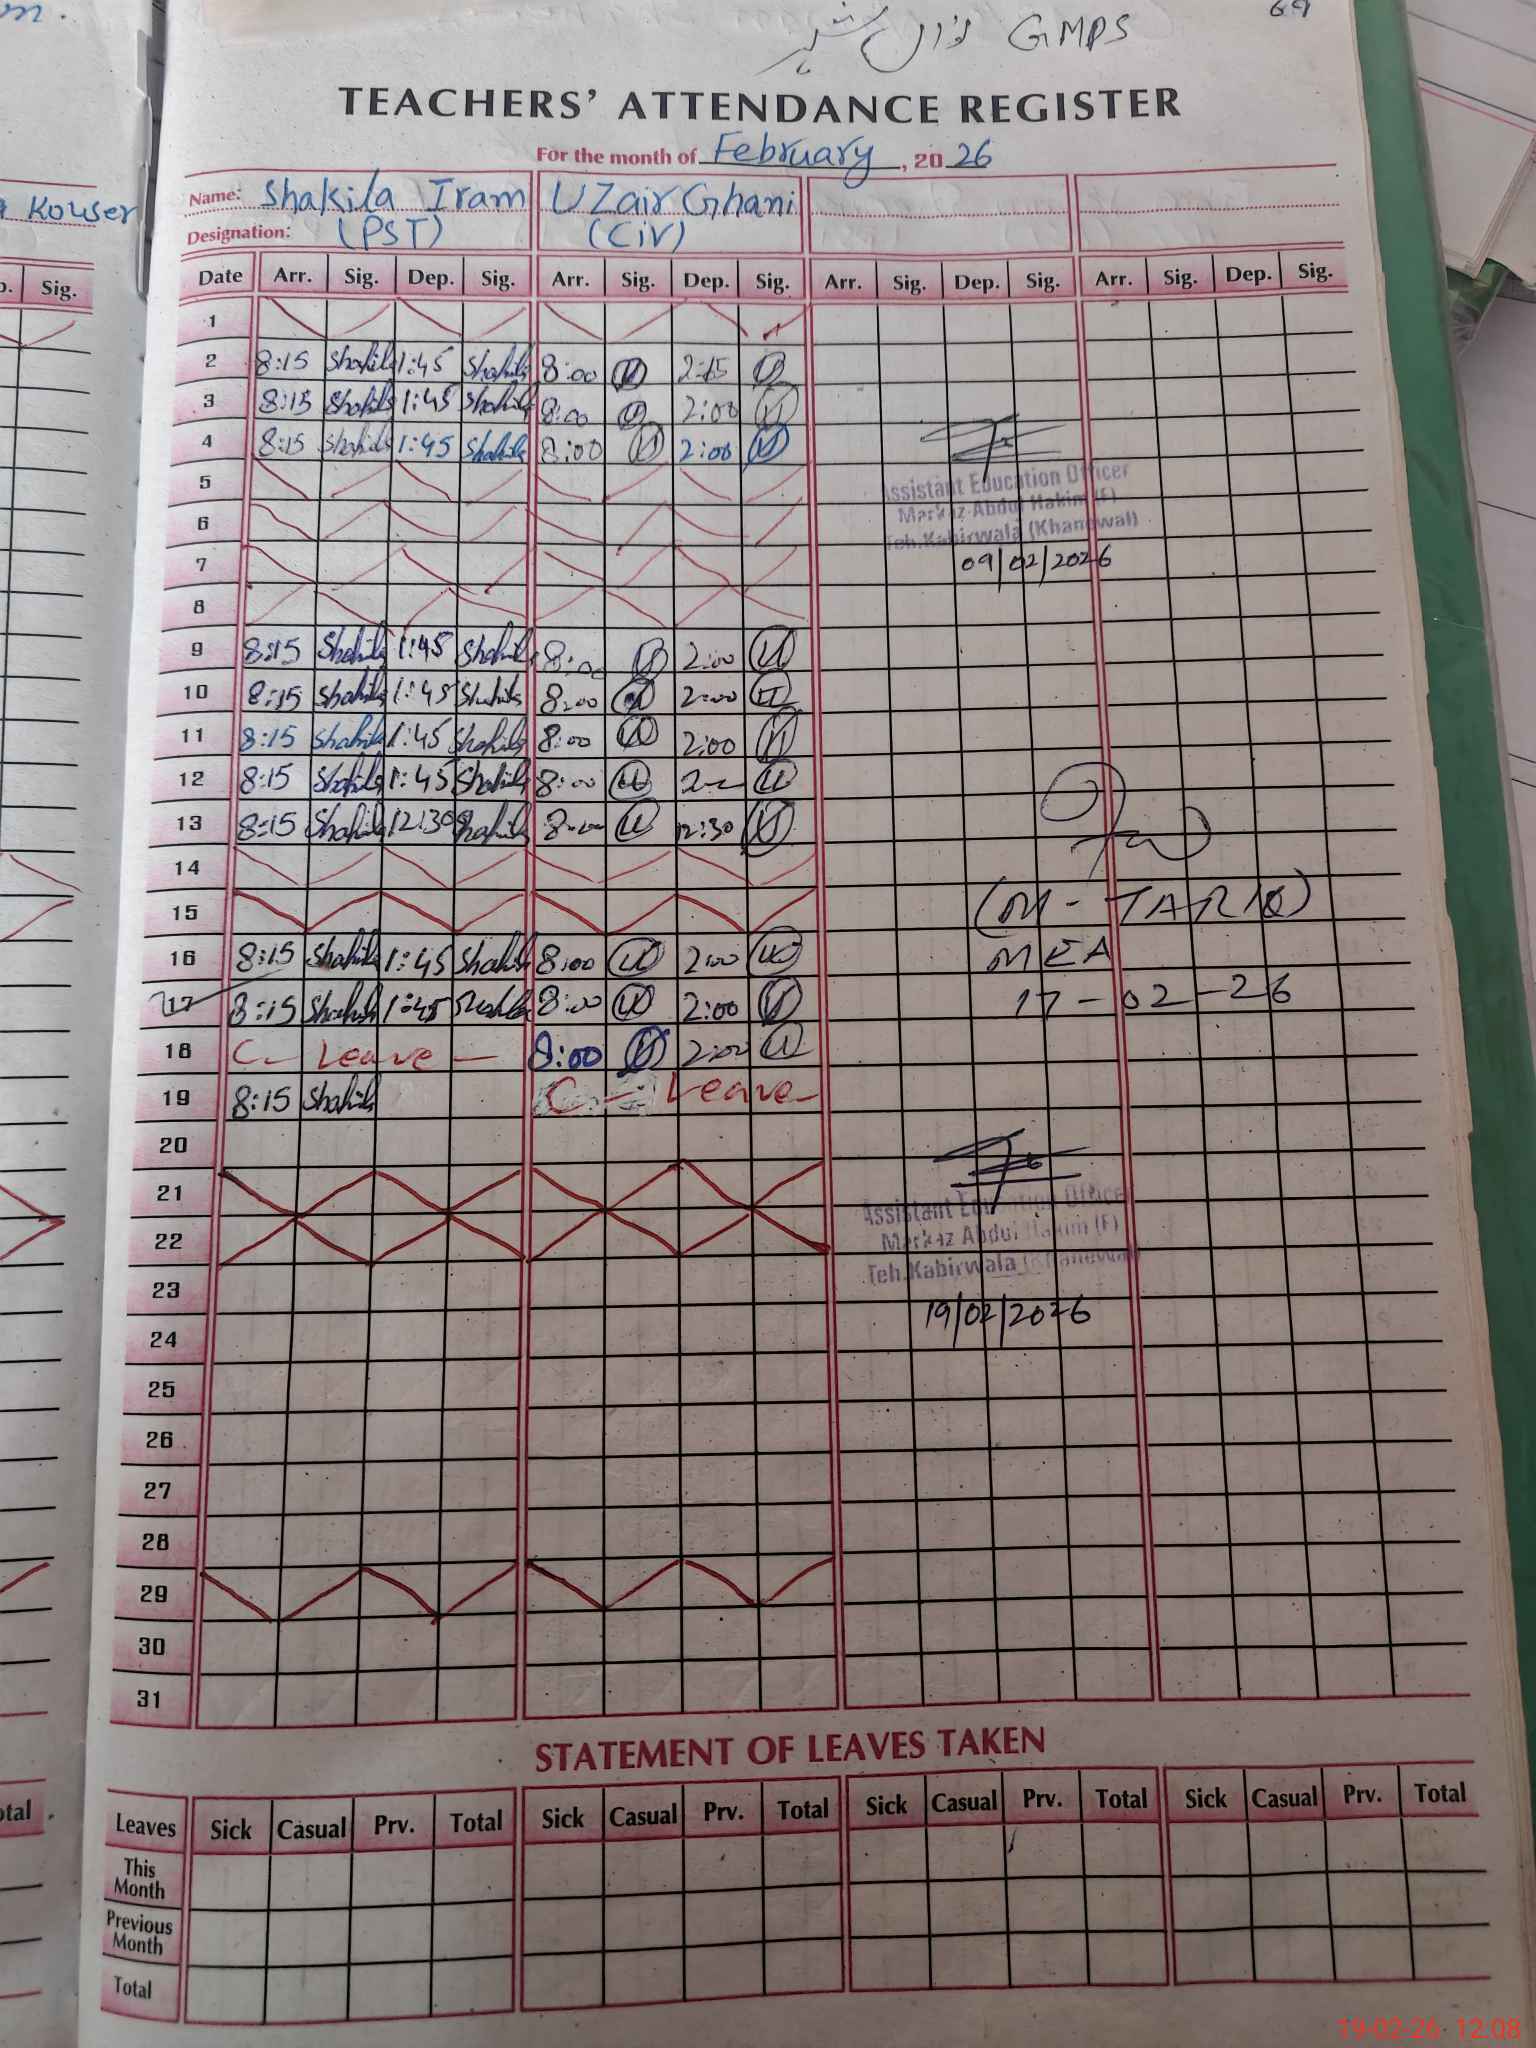 GMPS
69
TEACHERS' ATTENDANCE REGISTER
For the month of February, 2026
Kouser
Name: Shakila Iram UZair Ghani
Designation: (PST) (Civ)
Date Arr. Sig. Dep. Sig. Arr. Sig. Dep. Sig. Arr. Sig. Dep. Sig. Arr. Sig. Dep. Sig.
Sig.
1
2 8:15 Shakila 1:45 Shakila 8:00 U 2:15 U
3 8:15 Shakila 1:45 Shakila 8:00 U 2:00 U
4 8:15 Shakila 1:45 Shakila 8:00 U 2:00 U
5
Assistant Education Officer
6
Markaz Abdul Hakim (F)
Teh. Kabirwala (Khanewal)
7
09/02/2026
8
9 8:15 Shakila 1:45 Shakila 8:00 U 2:00 U
10 8:15 Shakila 1:45 Shakila 8:00 U 2:00 U
11 8:15 Shakila 1:45 Shakila 8:00 U 2:00 U
12 8:15 Shakila 1:45 Shakila 8:00 U 2 U
13 8:15 Shakila 12:30 Shakila 8:00 U 12:30 U
14
15 (M-TARIQ)
16 8:15 Shakila 1:45 Shakila 8:00 U 2:00 U MEA
17 8:15 Shakila 1:45 Shakila 8:00 U 2:00 U 17-02-26
18 C- Leave - 8:00 U 2:00 U
19 8:15 Shakila C - Leave -
20
21
Assistant Education Officer
22 Markaz Abdul Hakim (F)
Teh. Kabirwala (Khanewal)
23
19/02/2026
24
25
26
27
28
29
30
31
STATEMENT OF LEAVES TAKEN
Leaves Sick Casual Prv. Total Sick Casual Prv. Total Sick Casual Prv. Total Sick Casual Prv. Total
This Month
Previous Month
Total
19-02-26 12:08